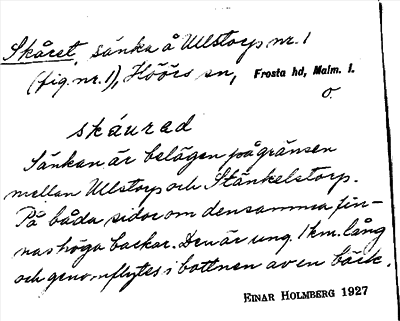 Skåret, sänka å Ullstorp nr. 1
(fig. nr. 1), Höörs sn, Frosta hd, Malm. l.
o.
skáurad
Sänkan är belägen på gränsen
mellan Ullstorp och Stänkelstorp.
På båda sidor om densamma fin-
nas höga backar. Den är ung. 1 km. lång
och genomflytes i bottnen av en bäck.
EINAR HOLMBERG 1927